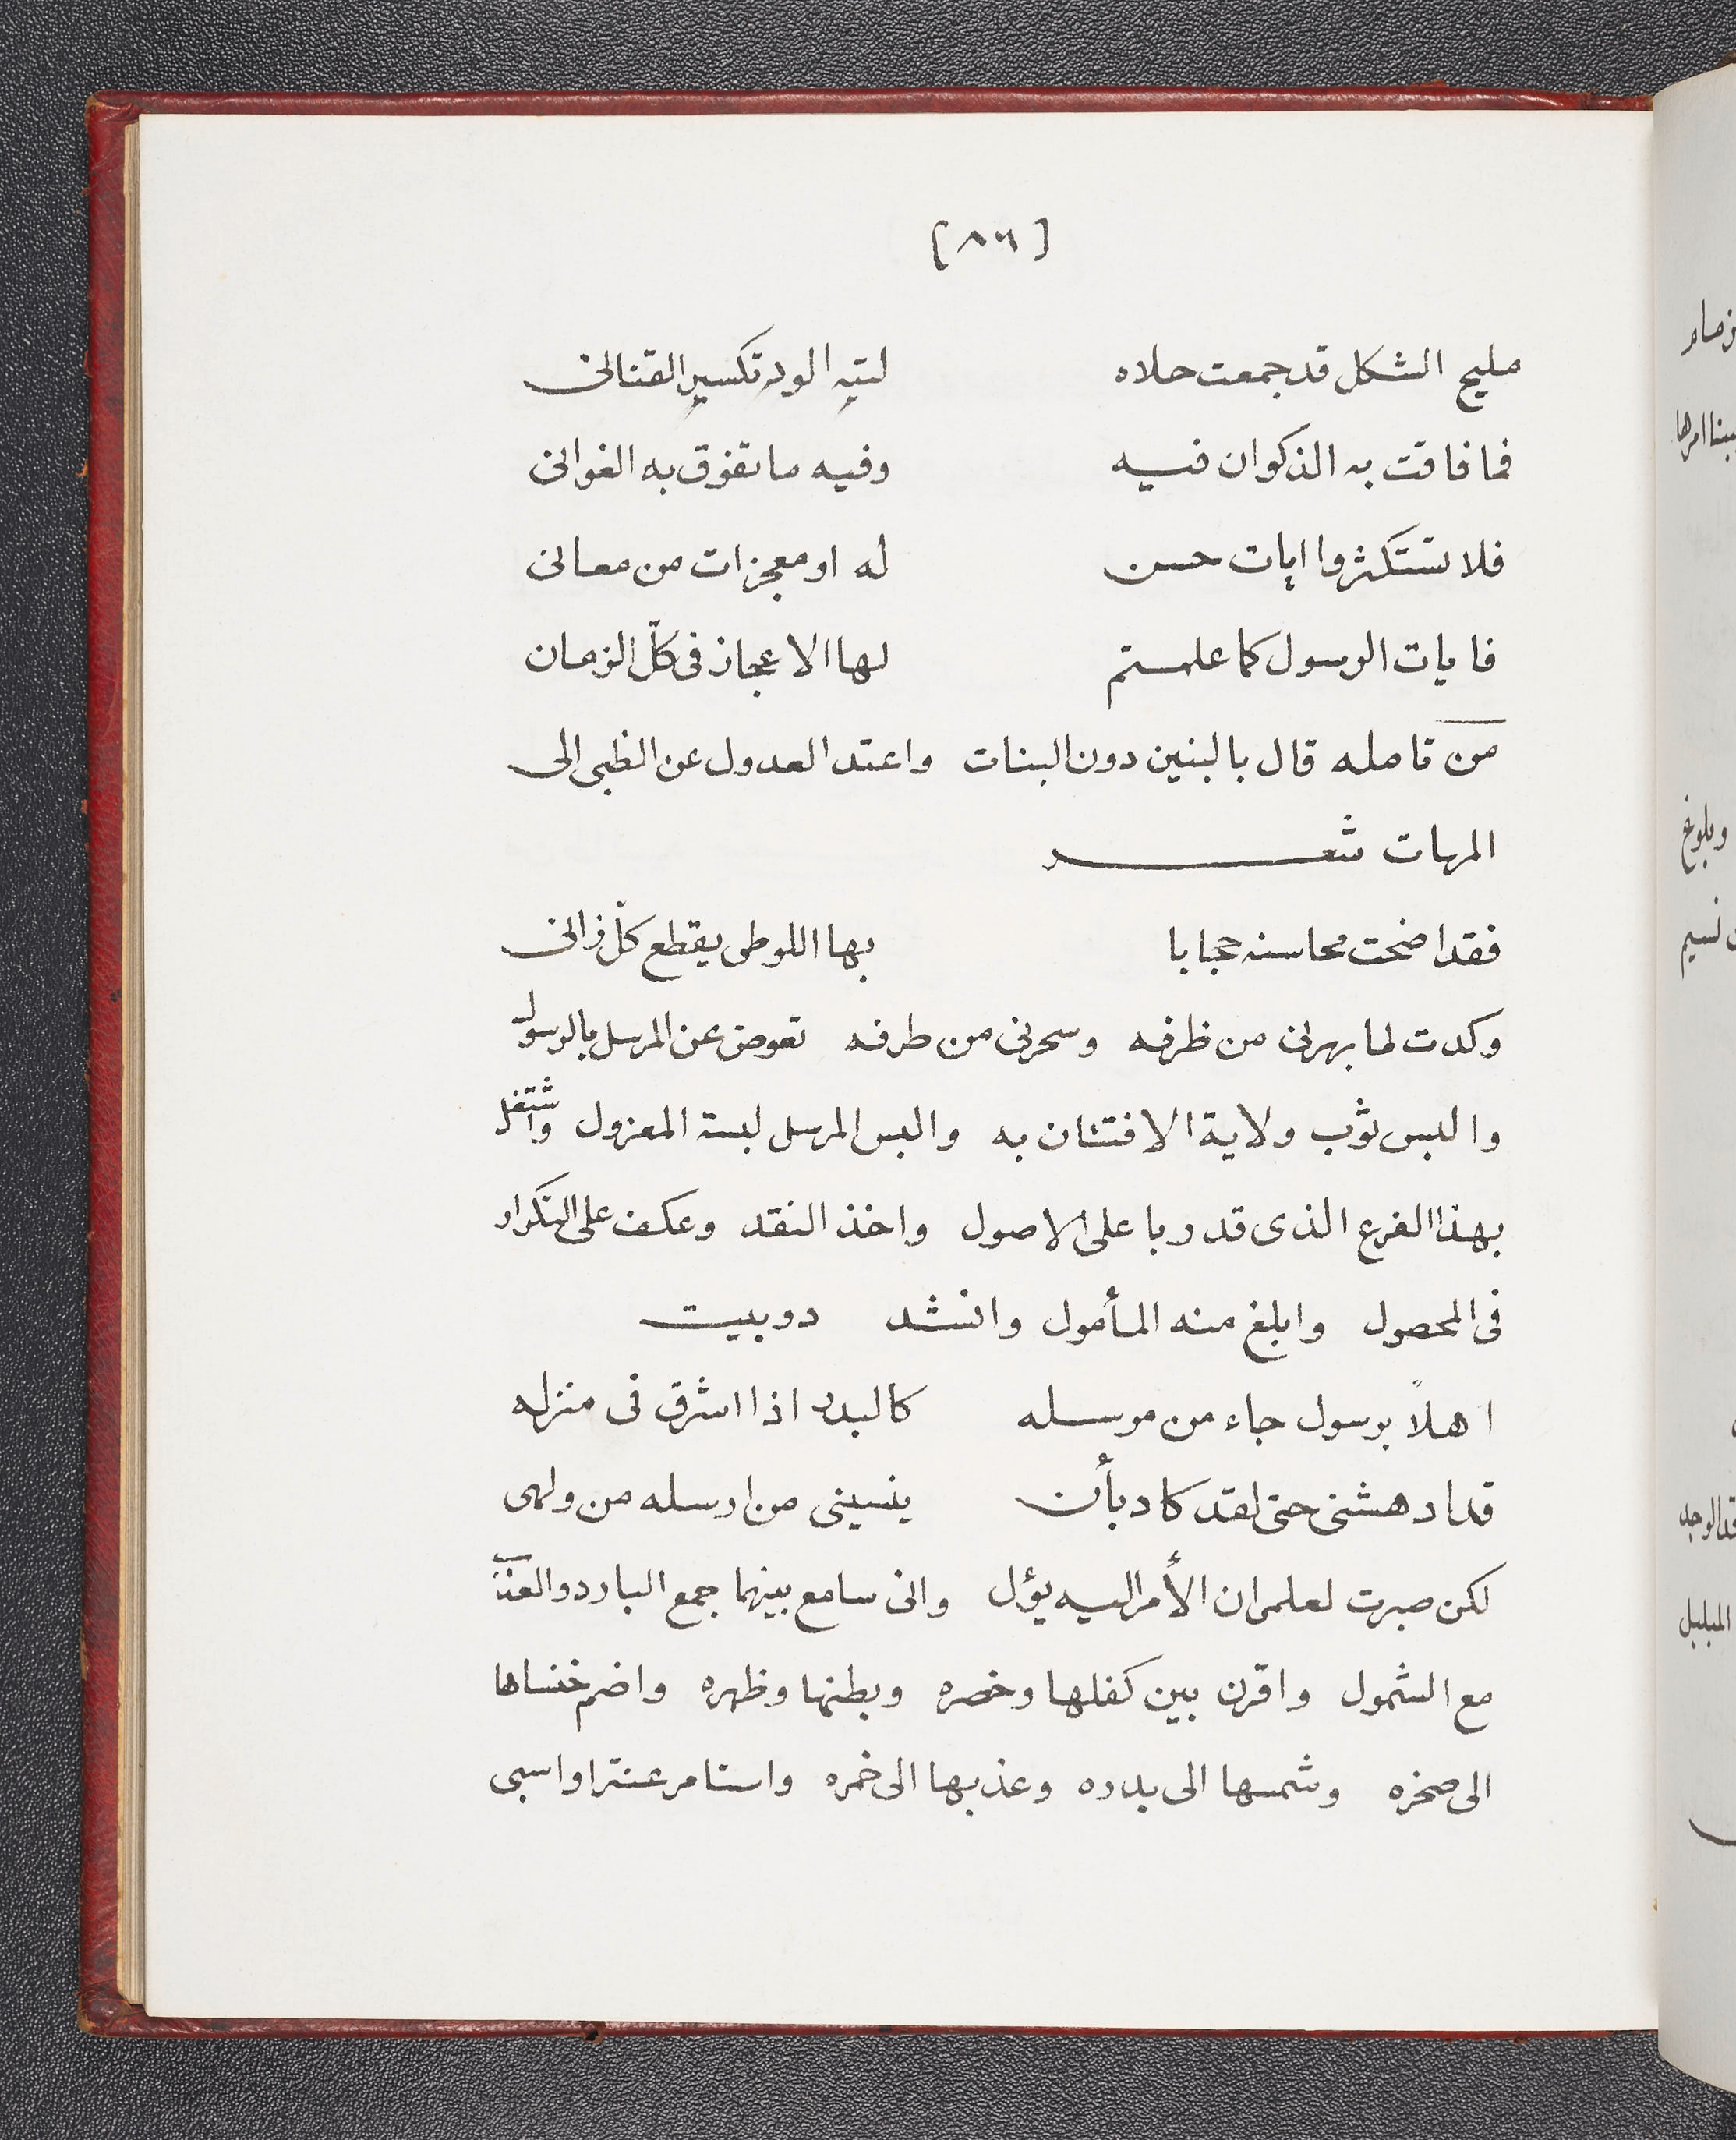 [٨٦]
مليح الشكل قد جمعت حلاه لتيه الورد تكسير القنانى
فما فاقت به الذكوان فيه وفيه ما تفوق به الغوانى
فلا تستكثروا ايات حسن له او معجزات من معانى
فايات الرسول كما علمتم لها الاعجاز فى كلّ الزمان
من تامله قال بالبنين دون البنات واعتد العدول عن الظبى الى
المهات شعر
فقد اضحت محاسنه حجابا بها اللوطى يقطع كلّ زانى
وكدت لما بهرنى من ظرفه وسحرنى من طرفه تعوض عن المرسل بالرسول
والبس ثوب ولاية الافتتان به والبس المرسل لبسة المعزول واشتغل
بهذا الفرع الذى قد ربا على الاصول واخذ النقد وعكف على التكرار
فى المحصول وابلغ منه المأمول وانشد دوبيت
اهلاً برسول جاء من مرسله كالبدر اذا اشرق فى منزله
قد ادهشنى حتى لقد كاد بأن ينسينى من ارسله من ولهى
لكن صبرت لعلمى ان الأمر اليه يؤل وانى سامع بينهما جمع البارد والعذب
مع الشمول واقرن بين كفلها وخصره وبطنها وظهره واضم خنساها
الى صخره وشمسها الى بدره وعذبها الى خمره واستامر عنترا واسبى